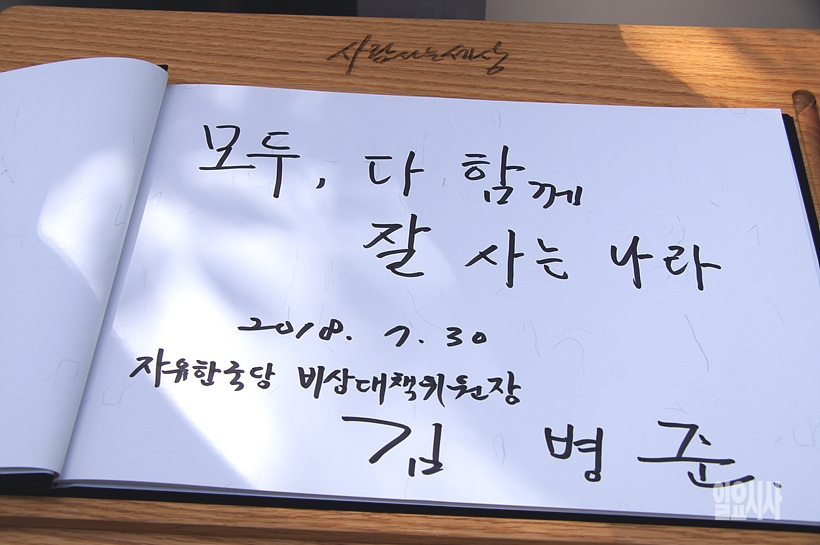 사람사는세상
모두, 다 함께
잘 사는 나라
2018. 7. 30
자유한국당 비상대책위원장
김 병 준
일요시사